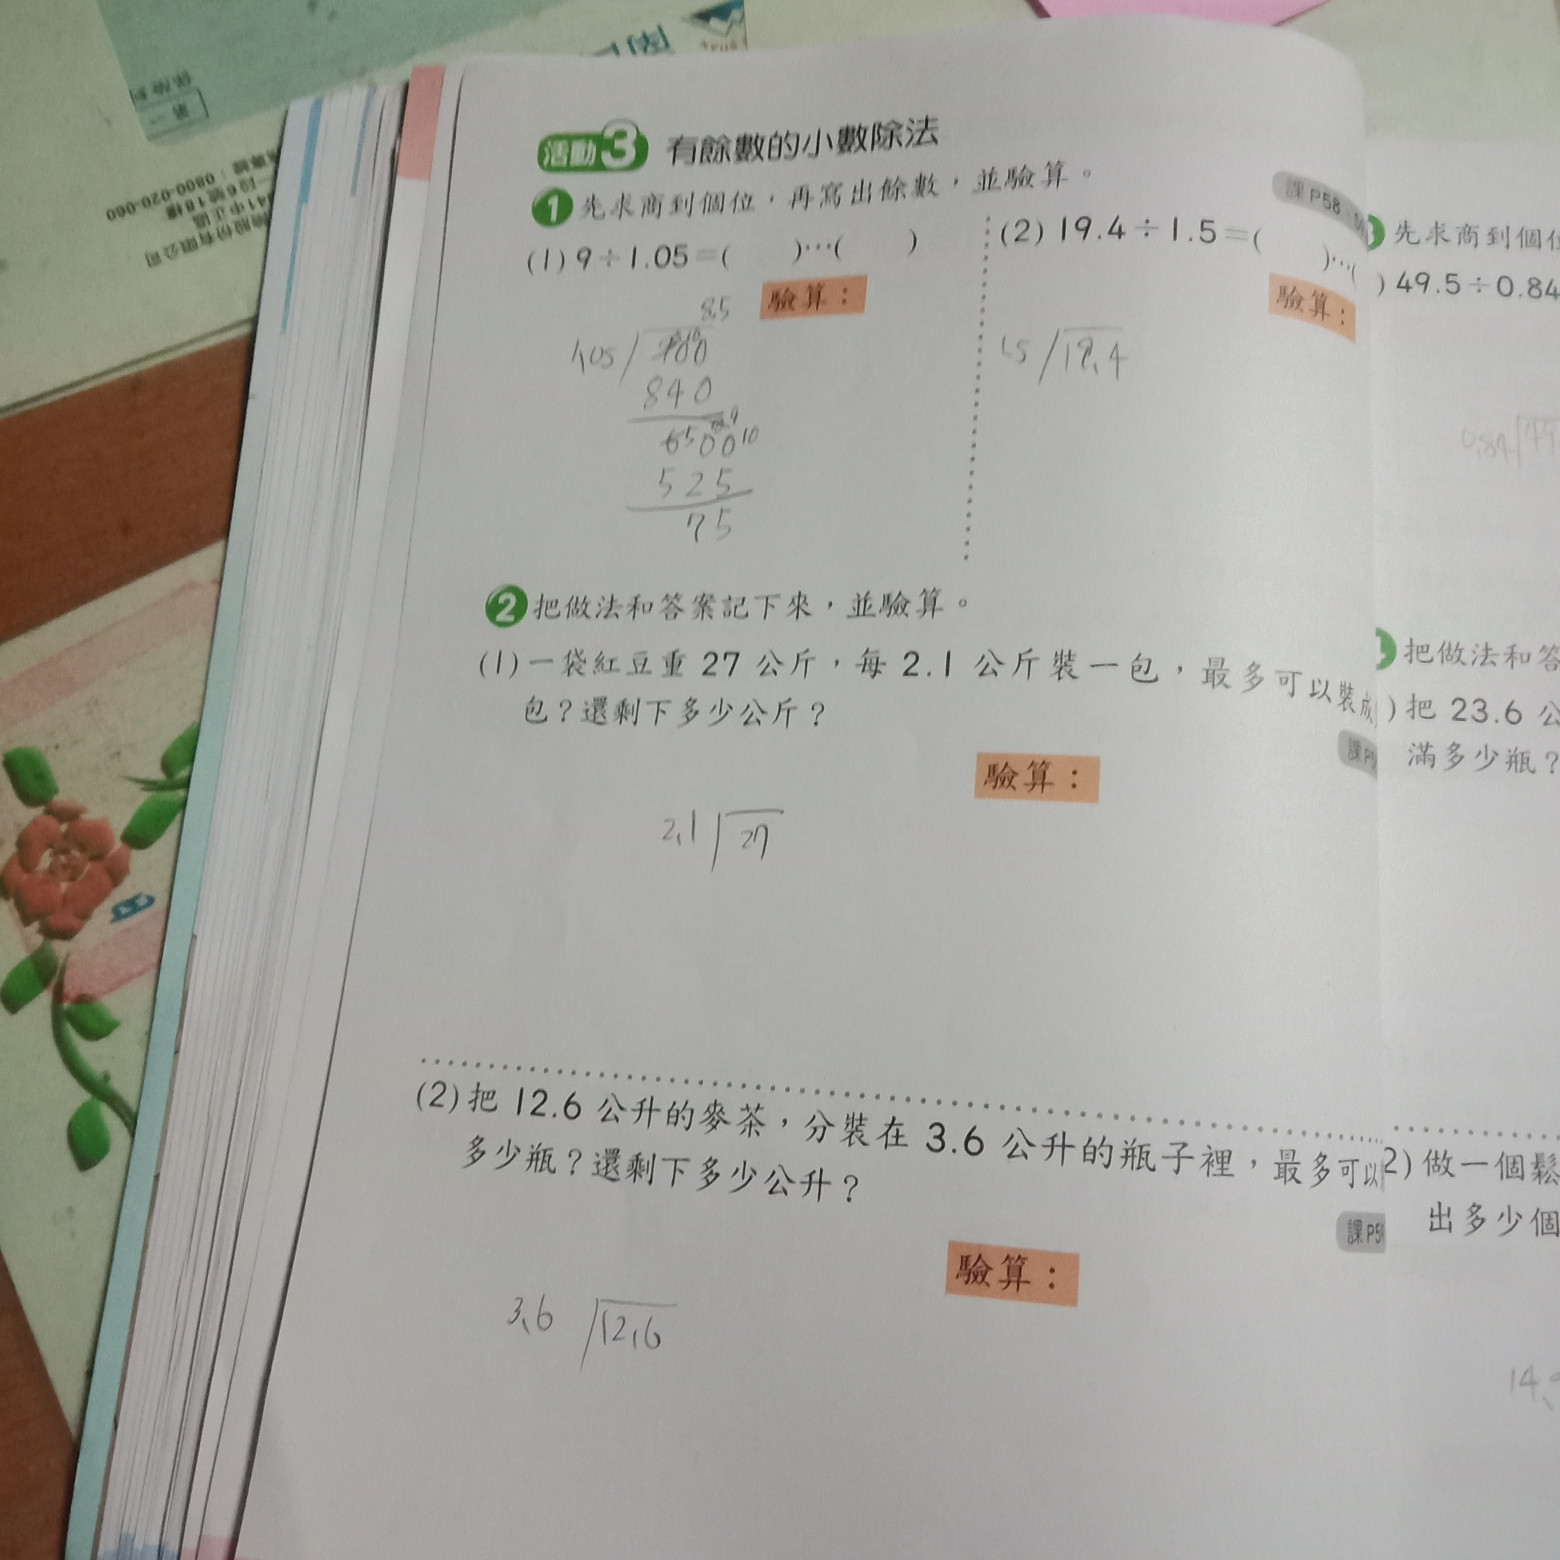 活動3 有餘數的小數除法
1 先求商到個位，再寫出餘數，並驗算。
課P58
(1) 9÷1.05=(　　)…(　　)
驗算：
8.5
1.05
900
840
525
75
(2) 19.4÷1.5=(　　)…(
驗算：
1.5 19.4
2 把做法和答案記下來，並驗算。
(1) 一袋紅豆重 27 公斤，每 2.1 公斤裝一包，最多可以裝成
包？還剩下多少公斤？
課P5
驗算：
2.1 27
(2) 把 12.6 公升的麥茶，分裝在 3.6 公升的瓶子裡，最多可以
多少瓶？還剩下多少公升？
課P5
驗算：
3.6 12.6
先求商到個位
) 49.5÷0.84
0.84
把做法和答
) 把 23.6 公
滿多少瓶？
2) 做一個鬆
出多少個
14.
0800-020-060